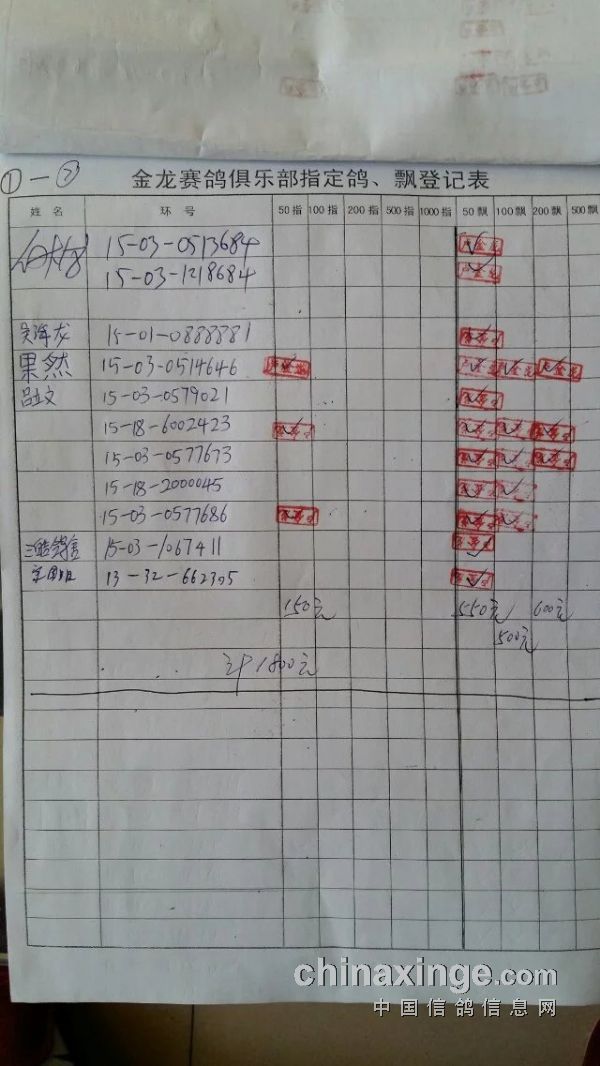 ①-②
金龙赛鸽俱乐部指定鸽、飘登记表
姓名 环号 50指 100指 200指 500指 1000指 50飘 100飘 200飘 500飘
15-03-0513684
15-03-1218684
15-01-0888881
果然 15-03-0514646
吕立文 15-03-0579021
15-18-6002423
15-03-0577673
15-18-2000045
15-03-0577686
15-03-1067411
13-32-662395
150元 550元 600元
500元
计1800元
chinaxinge.com
中国信鸽信息网